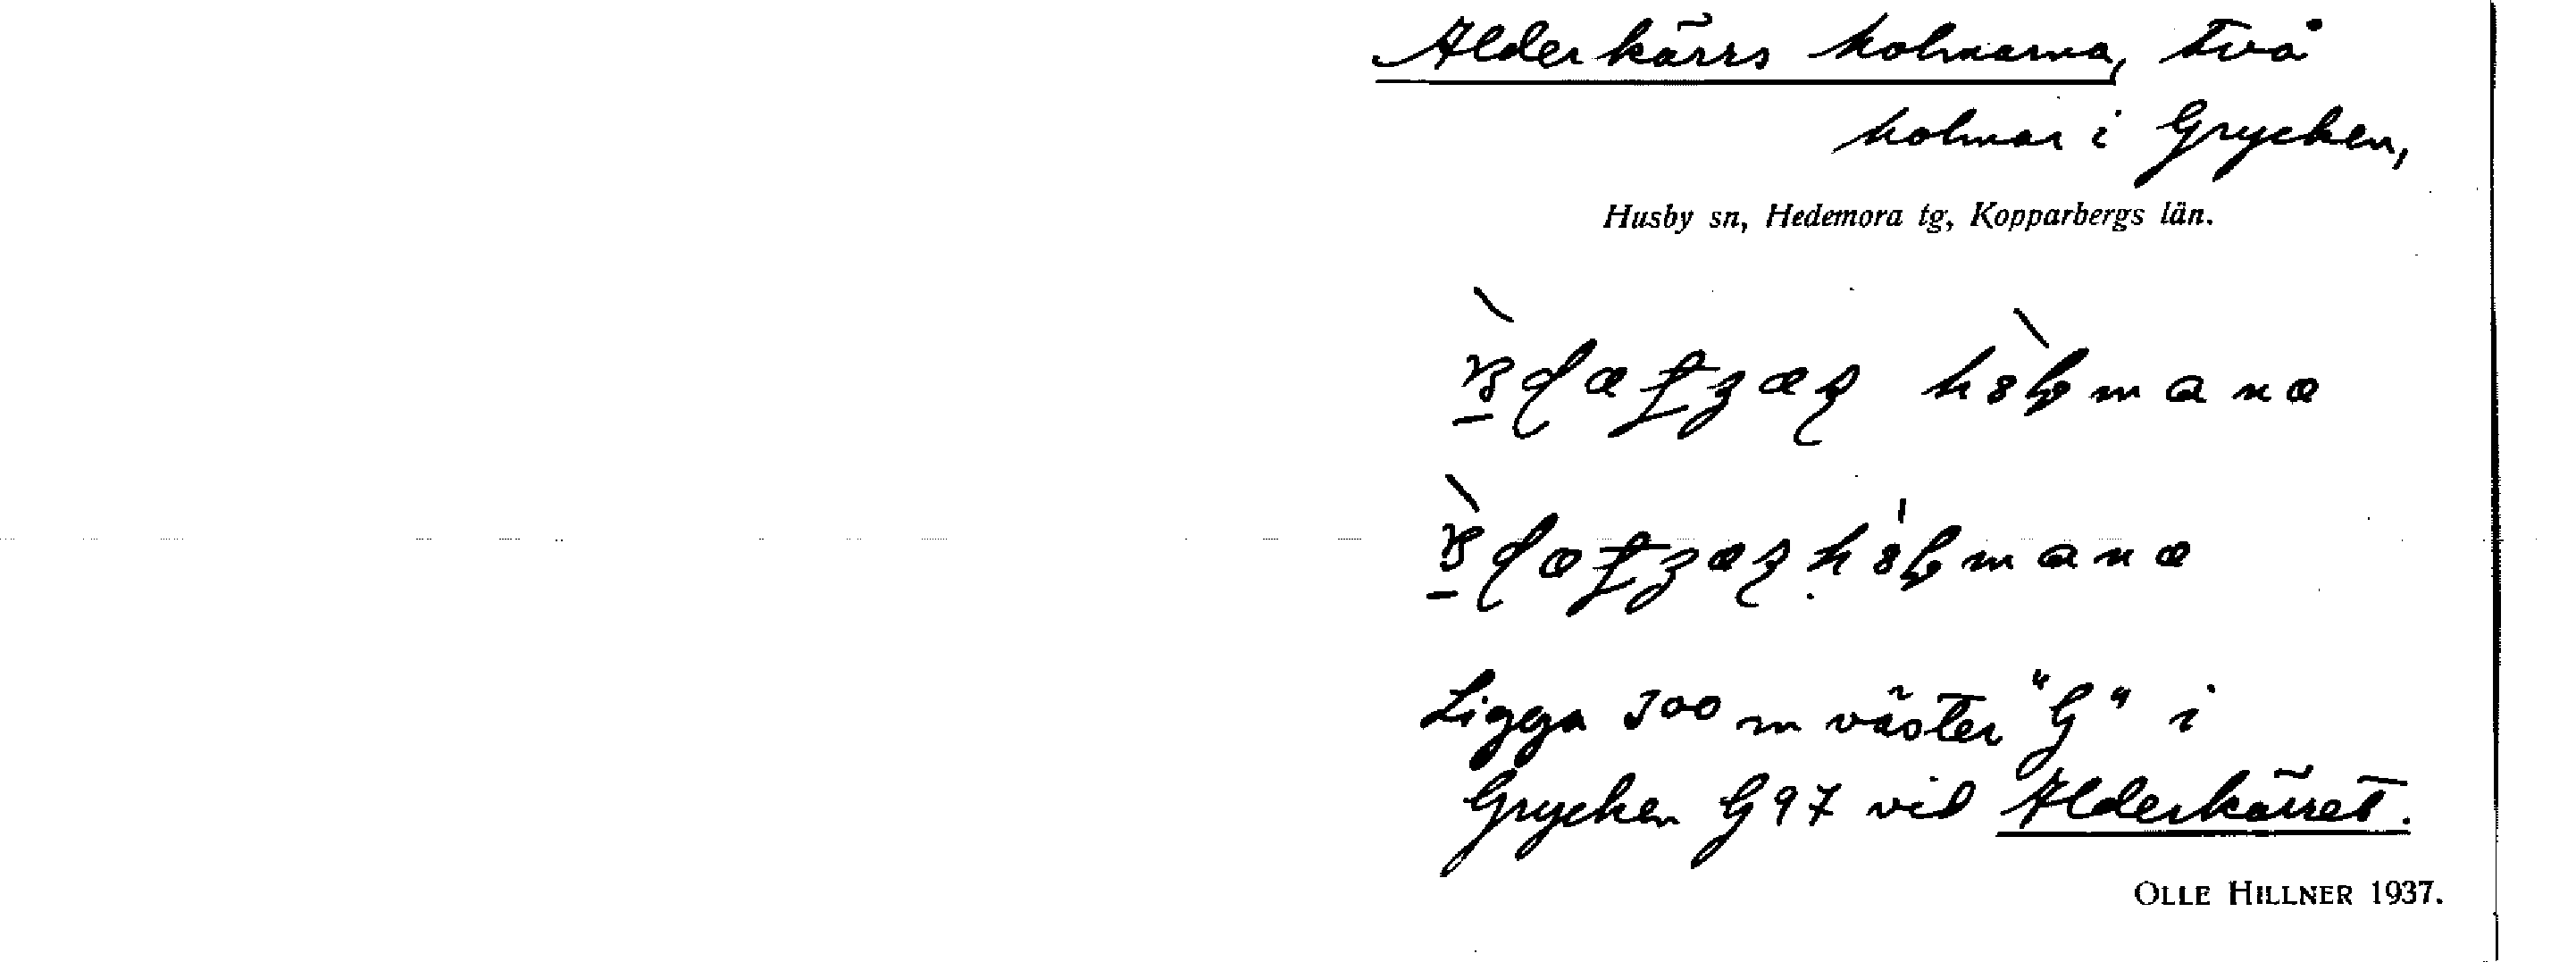 Alderkärrs holmarna, två
holmar i Grycken,
Husby sn, Hedemora tg, Kopparbergs län.
Ligga 300 m väster "G" i
Grycken G97 vid Alderkärret.
OLLE HILLNER 1937.